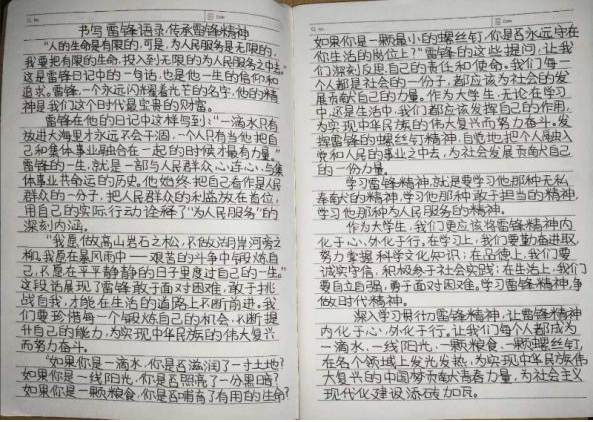 书写雷锋语录,传承雷锋精神
"人的生命是有限的,可是,为人民服务是无限的,
我要把有限的生命,投入到无限的为人民服务之中去。"
这是雷锋日记中的一句话,也是他一生的信仰和
追求。雷锋,一个永远闪耀着光芒的名字,他的精
神是我们这个时代最宝贵的财富。
雷锋在他的日记中这样写到:"一滴水只有
放进大海里才永远不会干涸,一个人只有当他把自
己和集体事业融合在一起的时候才最有力量。"
雷锋的一生,就是一部与人民群众心连心,与集
体事业共命运的历史。他始终把自己看作是人民
群众的一分子,把人民群众的利益放在首位,
用自己的实际行动诠释了"为人民服务"的
深刻内涵。
"我愿做高山岩石之松,不做湖岸河旁之
柳。我愿在暴风雨中——艰苦的斗争中锻炼自
己,不愿在平平静静的日子里度过自己的一生。"
这段话展现了雷锋敢于面对困难,敢于挑
战自我,才能在生活的道路上不断前进。我
们要珍惜每一个锻炼自己的机会,不断提
升自己的能力,为实现中华民族的伟大复兴
而努力奋斗。
"如果你是一滴水,你是否滋润了一寸土地?
如果你是一线阳光,你是否照亮了一分黑暗?
如果你是一颗粮食,你是否哺育了有用的生命?
如果你是一颗最小的螺丝钉,你是否永远守在
你生活的岗位上?"雷锋的这些提问,让我
们深刻反思自己的责任和使命。我们每一
个人都是社会的一份子,都应该为社会的发
展贡献自己的力量。作为大学生,无论在学习
中,还是生活中,我们都应该发挥自己的作用,
为实现中华民族的伟大复兴而努力奋斗。发
挥雷锋的螺丝钉精神,自觉地把个人融入
党和人民的事业之中去,为社会发展贡献自己
的一份力量。
学习雷锋精神,就是要学习他那种无私
奉献的精神,学习他那种敢于担当的精神,
学习他那种为人民服务的精神。
作为大学生,我们更应该将雷锋精神内
化于心,外化于行。在学习上,我们要勤奋进取,
努力掌握科学文化知识;在品德上,我们要
诚实守信,积极参于社会实践;在生活上,我们
要自立自强,勇于面对困难。学习雷锋精神,争
做时代精神。
深入学习贯彻雷锋精神,让雷锋精神
内化于心,外化于行。让我们每个人都成为
一滴水,一线阳光,一颗粮食,一颗螺丝钉,
在各个领域上发光发热,为实现中华民族伟
大复兴的中国梦贡献青春力量,为社会主义
现代化建设添砖加瓦。